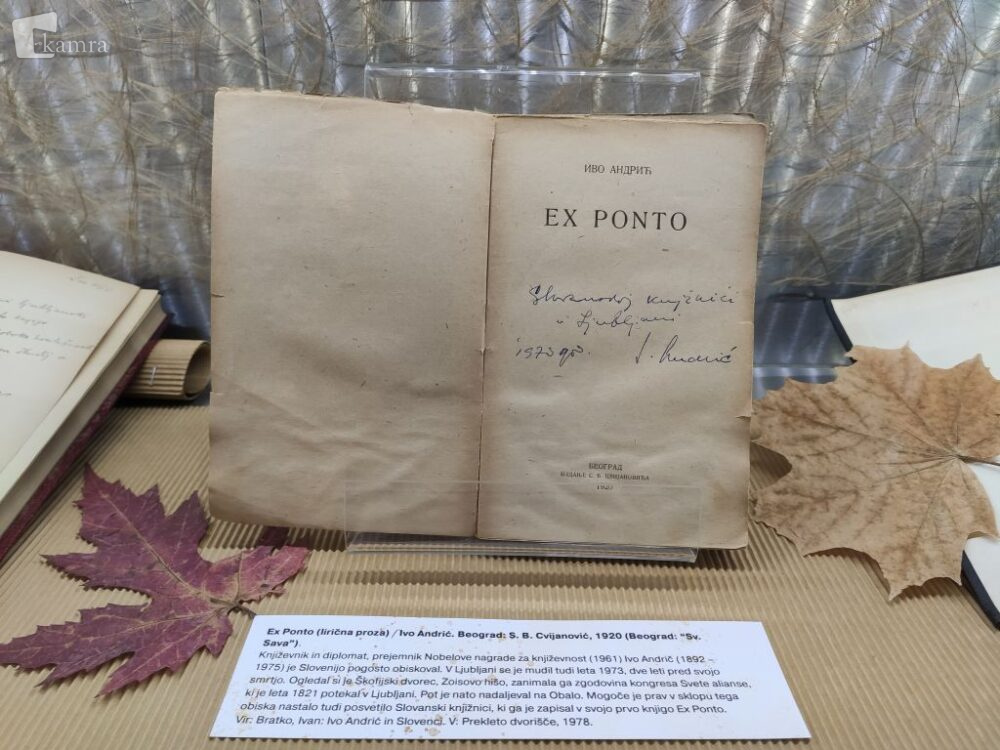 kamra
ИВО АНДРИЋ
EX PONTO
Slavenskoj knjižnici
u Ljubljani
1973 god. I. Andrić
БЕОГРАД
ИЗДАЊЕ С. Б. ЦВИЈАНОВИЋА
1920
Ex Ponto (lirična proza) / Ivo Andrić. Beograd: S. B. Cvijanović, 1920 (Beograd: “Sv.
Sava”).
Književnik in diplomat, prejemnik Nobelove nagrade za književnost (1961) Ivo Andrić (1892 –
1975) je Slovenijo pogosto obiskoval. V Ljubljani se je mudil tudi leta 1973, dve leti pred svojo
smrtjo. Ogledal si je Škofijski dvorec, Zoisovo hišo, zanimala ga zgodovina kongresa Svete alianse,
ki je leta 1821 potekal v Ljubljani. Pot je nato nadaljeval na Obalo. Mogoče je prav v sklopu tega
obiska nastalo tudi posvetilo Slovanski knjižnici, ki ga je zapisal v svojo prvo knjigo Ex Ponto.
Vir: Bratko, Ivan: Ivo Andrić in Slovenci. V: Prekleto dvorišče, 1978.